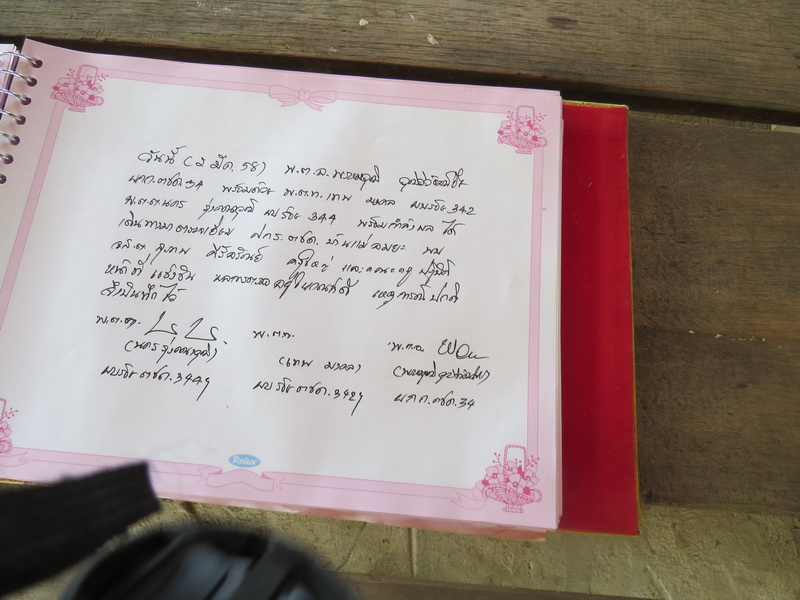 วันนี้ (2 มีค. 58) พ.ต.อ.
ผกก.ตชด.34 พร้อมด้วย พ.ต.ท. เทพ มงคล ผบ.ร้อย 342
พ.ต.ต.นคร รุ่งคณาวุฒิ ผบ.ร้อย 344 พร้อมกำลังพล ได้
เดินทางมาตรวจเยี่ยม ศกร.ตชด. บ้านแม่ลมยะ พบ
จ.ส.ต. สุเทพ ศิริสุรินย์ ครูใหญ่ และคณะครู ปฏิบัติ
หน้าที่ แข็งขัน ผลการตรวจ อยู่ในเกณฑ์ดี เหตุการณ์ปกติ
จึงบันทึกไว้
พ.ต.ต. พ.ต.ท. พ.ต.อ.
(นคร รุ่งคณาวุฒิ) (เทพ มงคล)
ผบ.ร้อย ตชด.344ฯ ผบ.ร้อย ตชด.342ฯ ผกก.ตชด.34
Reka